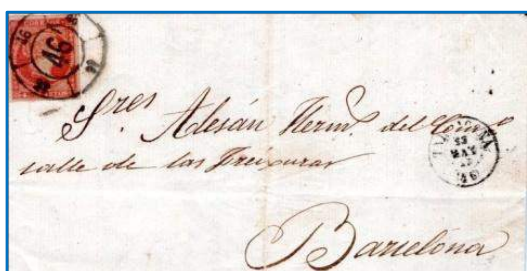 46
Sres Alesán Herms del Como
calle de las Freixuras
Barcelona
46